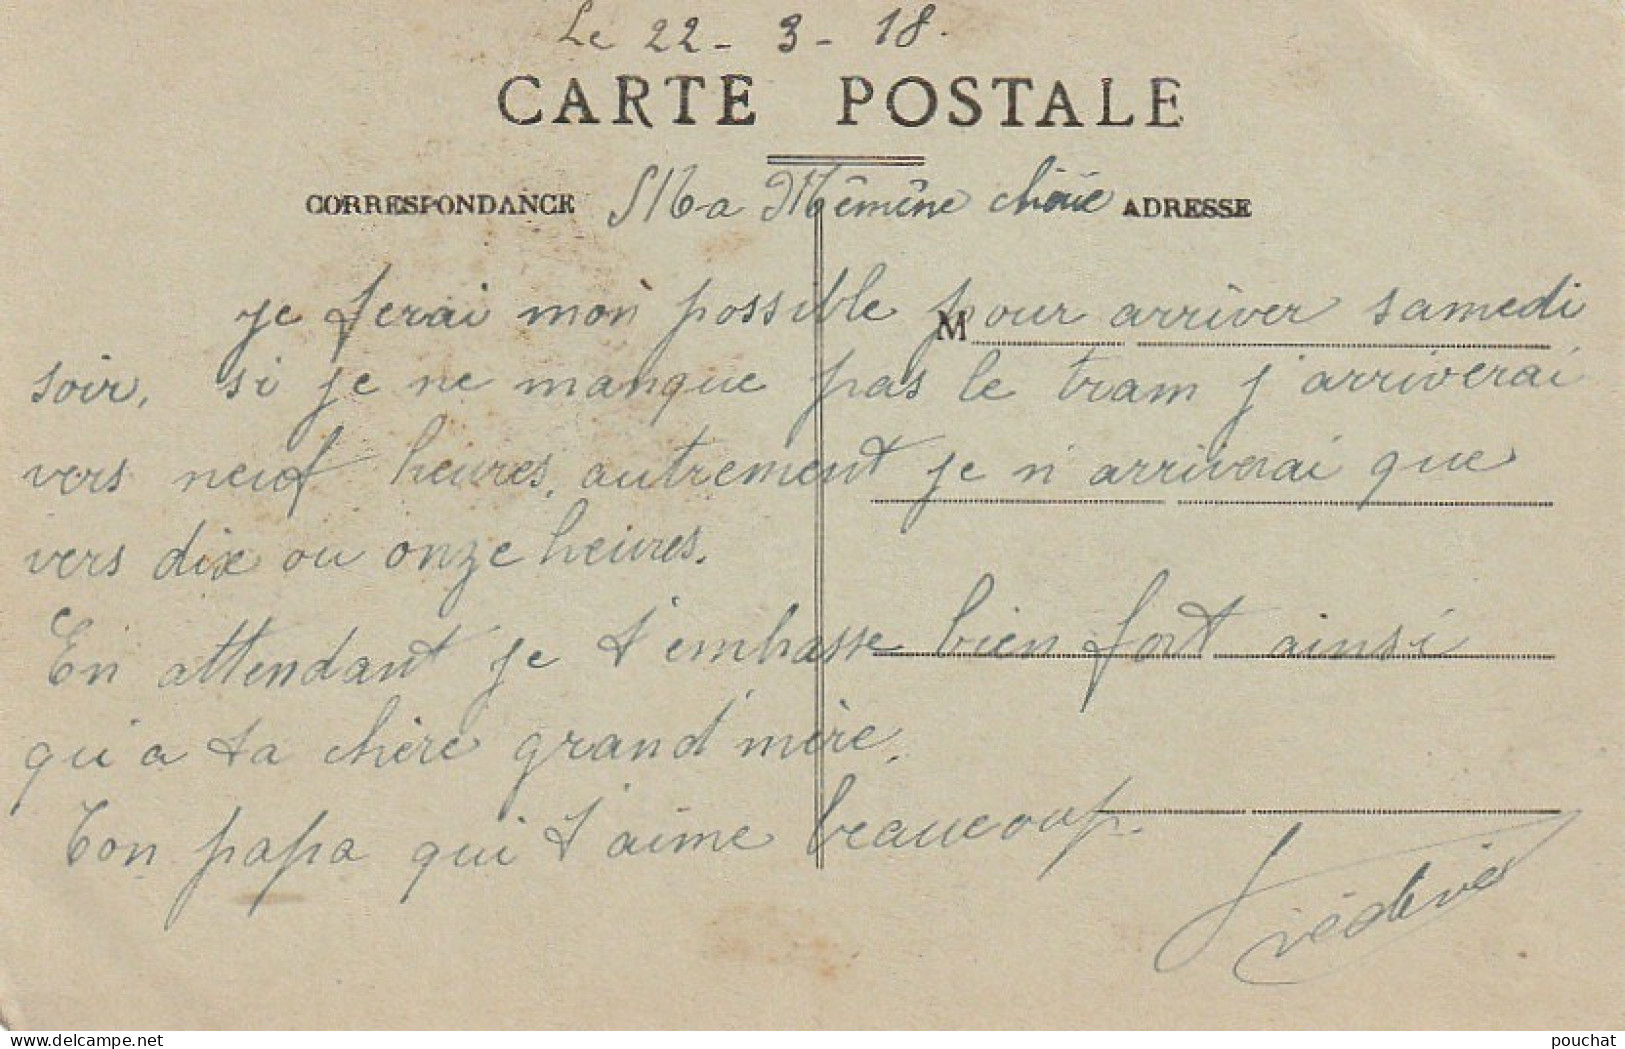 Le 22-3-18.
CARTE POSTALE
CORRESPONDANCE Ma Mêmêne ADRESSE
je ferai mon possible pour arriver samedi
M
soir, si je ne manque pas le tram j'arriverai
vers neuf heures, autrement je n'arriverai que
vers dix ou onze heures.
En attendant je t'embasse bien fort ainsi
qu'a ta chère grand'mère.
Ton papa qui t'aime beaucoup.
www.delcampe.net
pouchat